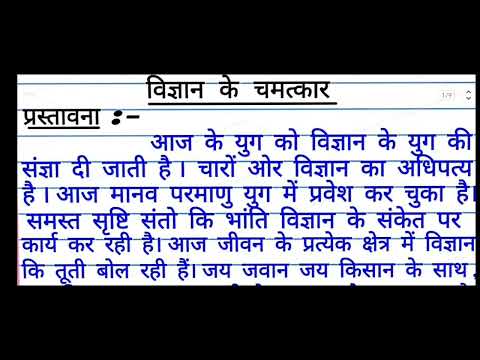 विज्ञान के चमत्कार
1/9
प्रस्तावना :-
आज के युग को विज्ञान के युग की
संज्ञा दी जाती है। चारों ओर विज्ञान का अधिपत्य
है। आज मानव परमाणु युग में प्रवेश कर चुका है।
समस्त सृष्टि संतो कि भांति विज्ञान के संकेत पर
कार्य कर रही है। आज जीवन के प्रत्येक क्षेत्र में विज्ञान
कि तूती बोल रही हैं। जय जवान जय किसान के साथ